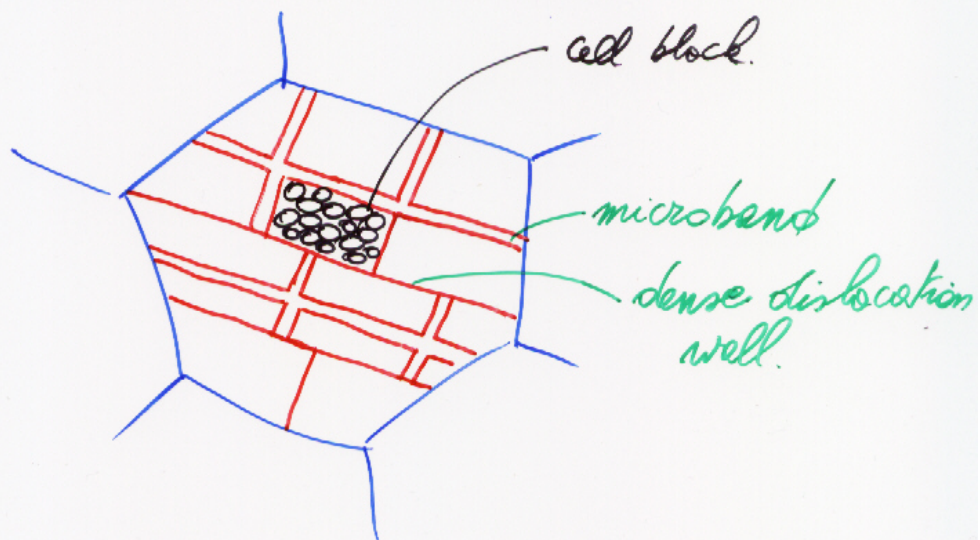 cell block.
microband
dense dislocation
wall.